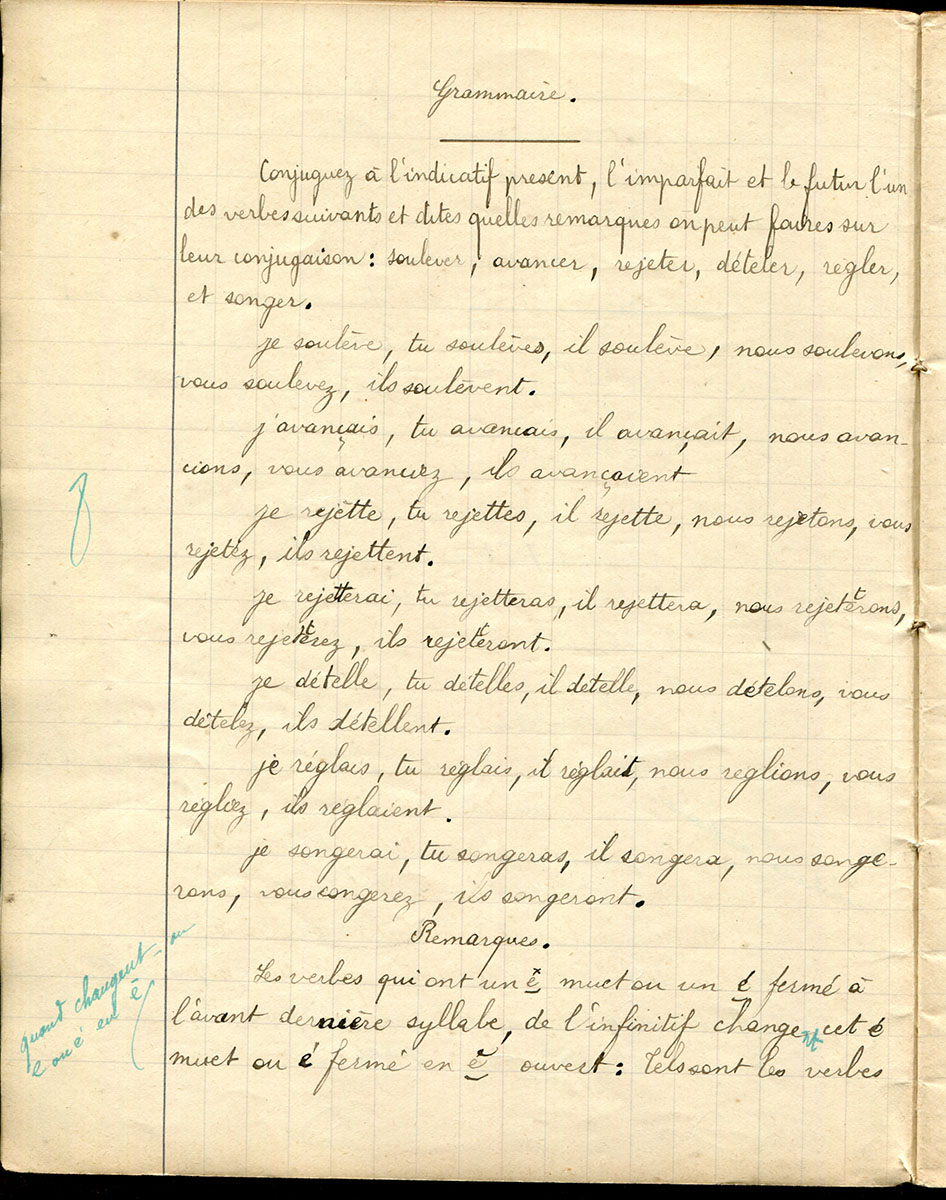 Grammaire.
Conjuguez à l'indicatif présent, l'imparfait et le futur l'un
des verbes suivants et dites quelles remarques on peut faires sur
leur conjugaison : soulever, avancer, rejeter, dételer, régler,
et songer.
je soulève, tu soulèves, il soulève, nous soulevons,
vous soulevez, ils soulèvent.
j'avançais, tu avancais, il avançait, nous avan-
cions, vous avanciez, ils avançaient
je rejette, tu rejettes, il rejette, nous rejetons, vous
rejetez, ils rejettent.
8
je rejetterai, tu rejetteras, il rejettera, nous rejetterons,
vous rejetterez, ils rejetteront.
je dételle, tu dételles, il dételle, nous dételons, vous
dételez, ils détellent.
je réglais, tu réglais, il réglait, nous réglions, vous
régliez, ils réglaient.
je songerai, tu songeras, il songera, nous songe-
rons, vous songerez, ils songeront.
Remarques.
Les verbes qui ont un e muet ou un é fermé à
l'avant dernière syllabe, de l'infinitif changent cet e
muet ou é fermé en è ouvert : Tels sont les verbes
quand changent-
e ou é en è